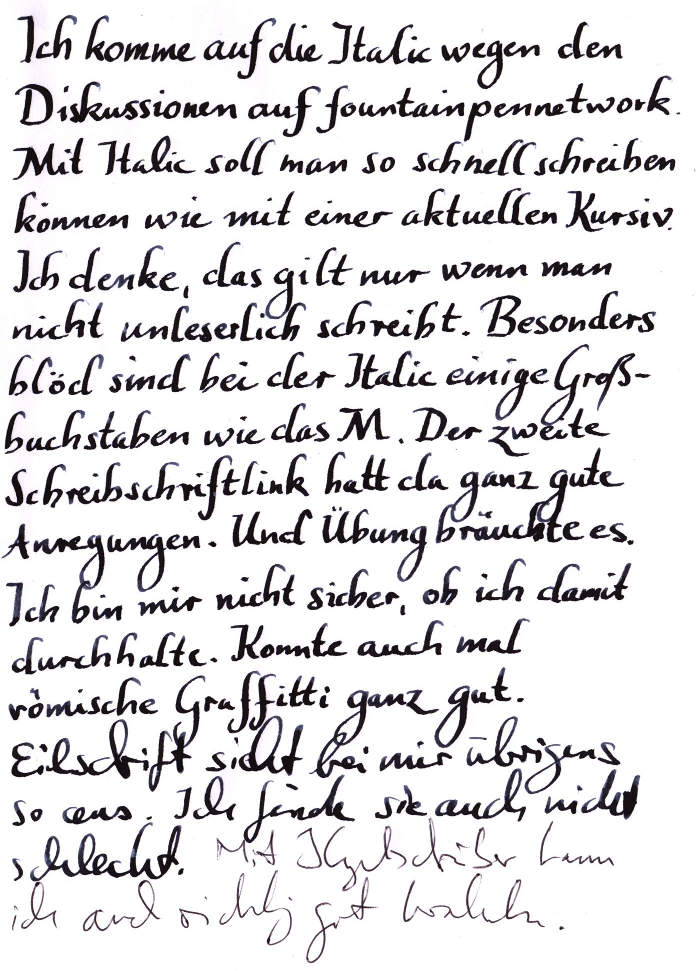 Ich komme auf die Italic wegen den
Diskussionen auf fountainpennetwork.
Mit Italic soll man so schnell schreiben
können wie mit einer aktuellen Kursiv.
Ich denke, das gilt nur wenn man
nicht unleserlich schreibt. Besonders
blöd sind bei der Italic einige Groß-
buchstaben wie das M. Der zweite
Schreibschriftlink hatt da ganz gute
Anregungen. Und Übung bräuchte es.
Ich bin mir nicht sicher, ob ich damit
durchhalte. Konnte auch mal
römische Graffitti ganz gut.
Eilschrift sieht bei mir übrigens
so aus. Ich finde sie auch nicht
schlecht. Mit Kugelschreiber kann
ich auch richtig gut krakeln.